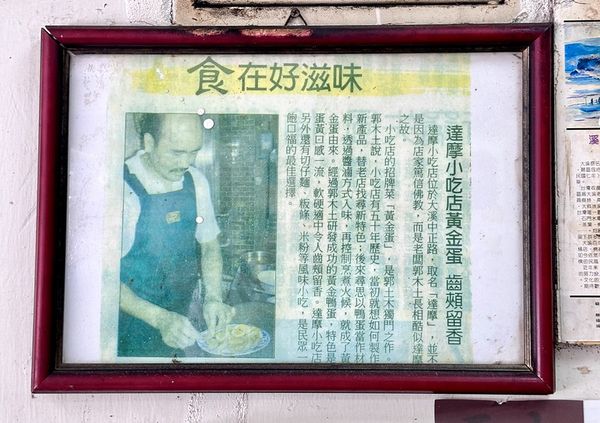 食在好滋味
達摩小吃店黃金蛋 齒頰留香
達摩小吃店位於大溪中正路，取名「達摩」，並不
是因為店家篤信佛教，而是老闆郭木土長相酷似達摩
之故。
小吃店的招牌菜「黃金蛋」，是郭土木獨門之作。
郭木土說，小吃店有五十年歷史，當初就想如何製作
新產品，替老店找尋新特色；後來尋思以鴨蛋當作材
料，透過醬滷方式入味，再控制烹煮火候，就成了黃
金蛋由來。經過郭木土研發成功的黃金鴨蛋，特色是
蛋黃口感一流，軟硬適中令人齒頰留香。達摩小吃店
另外還有切仔麵、粄條、米粉等風味小吃，是民眾一
飽口福的最佳選擇。
溪